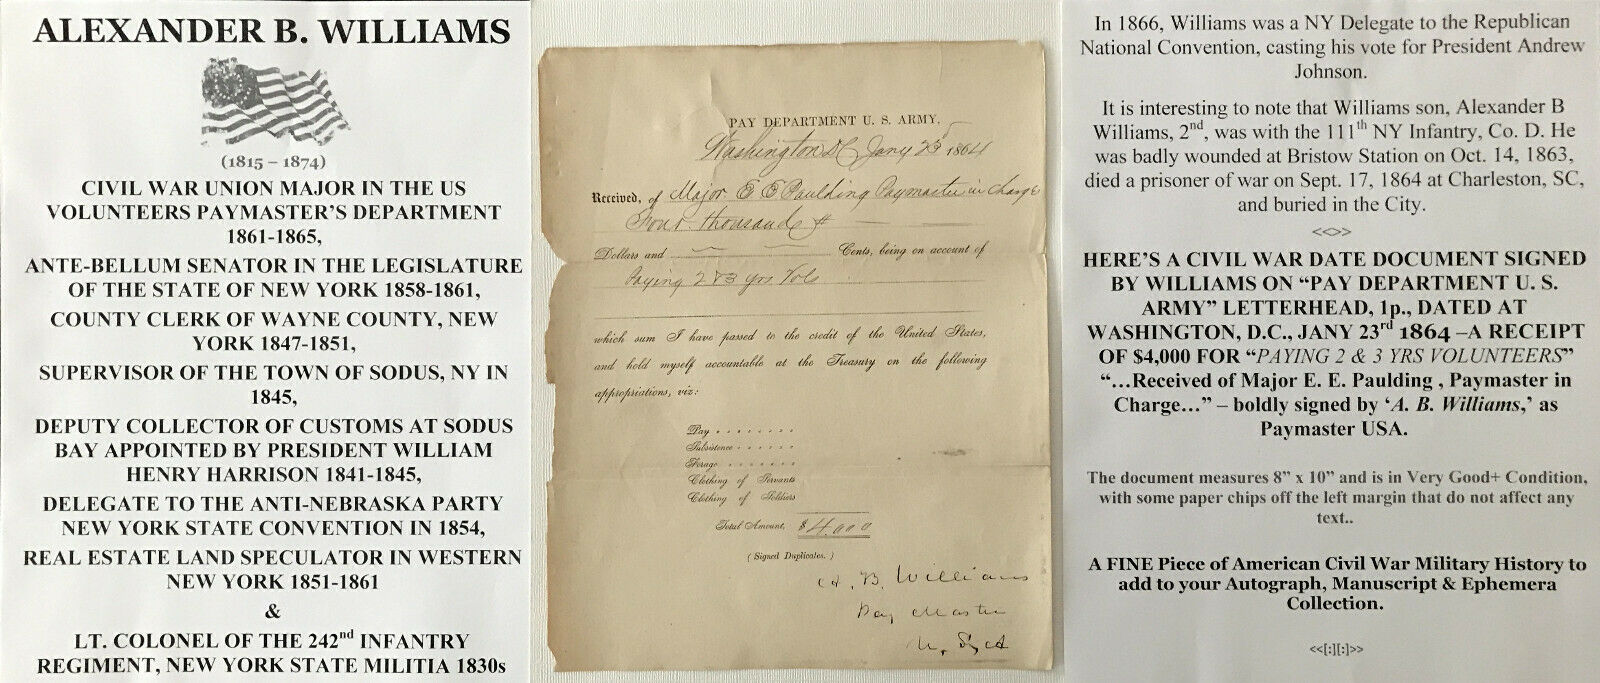 ALEXANDER B. WILLIAMS
(1815 – 1874)
CIVIL WAR UNION MAJOR IN THE US
VOLUNTEERS PAYMASTER'S DEPARTMENT
1861-1865,
ANTE-BELLUM SENATOR IN THE LEGISLATURE
OF THE STATE OF NEW YORK 1858-1861,
COUNTY CLERK OF WAYNE COUNTY, NEW
YORK 1847-1851,
SUPERVISOR OF THE TOWN OF SODUS, NY IN
1845,
DEPUTY COLLECTOR OF CUSTOMS AT SODUS
BAY APPOINTED BY PRESIDENT WILLIAM
HENRY HARRISON 1841-1845,
DELEGATE TO THE ANTI-NEBRASKA PARTY
NEW YORK STATE CONVENTION IN 1854,
REAL ESTATE LAND SPECULATOR IN WESTERN
NEW YORK 1851-1861
&
LT. COLONEL OF THE 242nd INFANTRY
REGIMENT, NEW YORK STATE MILITIA 1830s
PAY DEPARTMENT U. S. ARMY.
Washington DC Jany 23 1864
Received, of Major E E Paulding Paymaster in charge
Four thousand #
Dollars and Cents, being on account of
Paying 2 & 3 yrs Vols
which sum I have passed to the credit of the United States,
and hold myself accountable at the Treasury on the following
appropriations, viz:
Pay . . . . . . . .
Subsistence . . . . . .
Forage . . . . . . .
Clothing of Servants
Clothing of Soldiers
Total Amount, $ 4,000
( Signed Duplicates. )
A. B. Williams
Pay Master
U, S, A
In 1866, Williams was a NY Delegate to the Republican
National Convention, casting his vote for President Andrew
Johnson.
It is interesting to note that Williams son, Alexander B
Williams, 2nd, was with the 111th NY Infantry, Co. D. He
was badly wounded at Bristow Station on Oct. 14, 1863,
died a prisoner of war on Sept. 17, 1864 at Charleston, SC,
and buried in the City.
<<>>
HERE'S A CIVIL WAR DATE DOCUMENT SIGNED
BY WILLIAMS ON “PAY DEPARTMENT U. S.
ARMY” LETTERHEAD, 1p., DATED AT
WASHINGTON, D.C., JANY 23rd 1864 –A RECEIPT
OF $4,000 FOR “PAYING 2 & 3 YRS VOLUNTEERS”
“…Received of Major E. E. Paulding , Paymaster in
Charge…” – boldly signed by ‘A. B. Williams,’ as
Paymaster USA.
The document measures 8” x 10” and is in Very Good+ Condition,
with some paper chips off the left margin that do not affect any
text..
A FINE Piece of American Civil War Military History to
add to your Autograph, Manuscript & Ephemera
Collection.
<<[:][:]>>